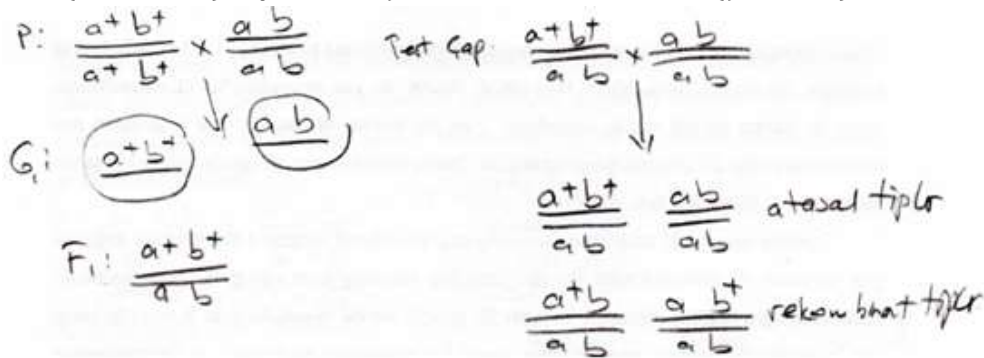 P: a+ b+ / a+ b+ x a b / a b
G1: a+ b+ a b
F1: a+ b+ / a b
Test Çap: a+ b+ / a b x a b / a b
a+ b+ / a b a b / a b atasal tipler
a+ b / a b a b+ / a b rekombinat tipler